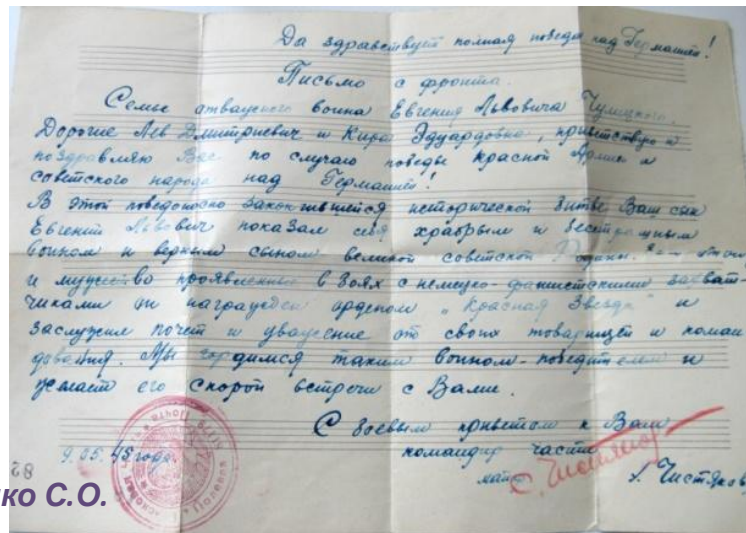 Да здравствует полная победа над Германией!
Письмо с фронта.
Семье отважного воина Евгения Львовича Чулицкого.
Дорогие Лев Дмитриевич и Кира Эдуардовна, приветствую и
поздравляю Вас по случаю победы Красной Армии и
советского народа над Германией!
В этой победоносно закончившейся исторической битве Ваш сын
Евгений Львович показал себя храбрым и бесстрашным
воином и верным сыном великой советской Родины. За
и мужество проявленные в боях с немецко-фашистскими захват-
чиками он награжден орденом "Красная Звезда" и
заслужил почет и уважение от своих товарищей и коман
дования. Мы гордимся таким воином-победителем и
желаем его скорой встречи с Вами.
С боевым приветом к Вам
9.05.45 года. командир части
майор Чистяков
82
ко С.О.